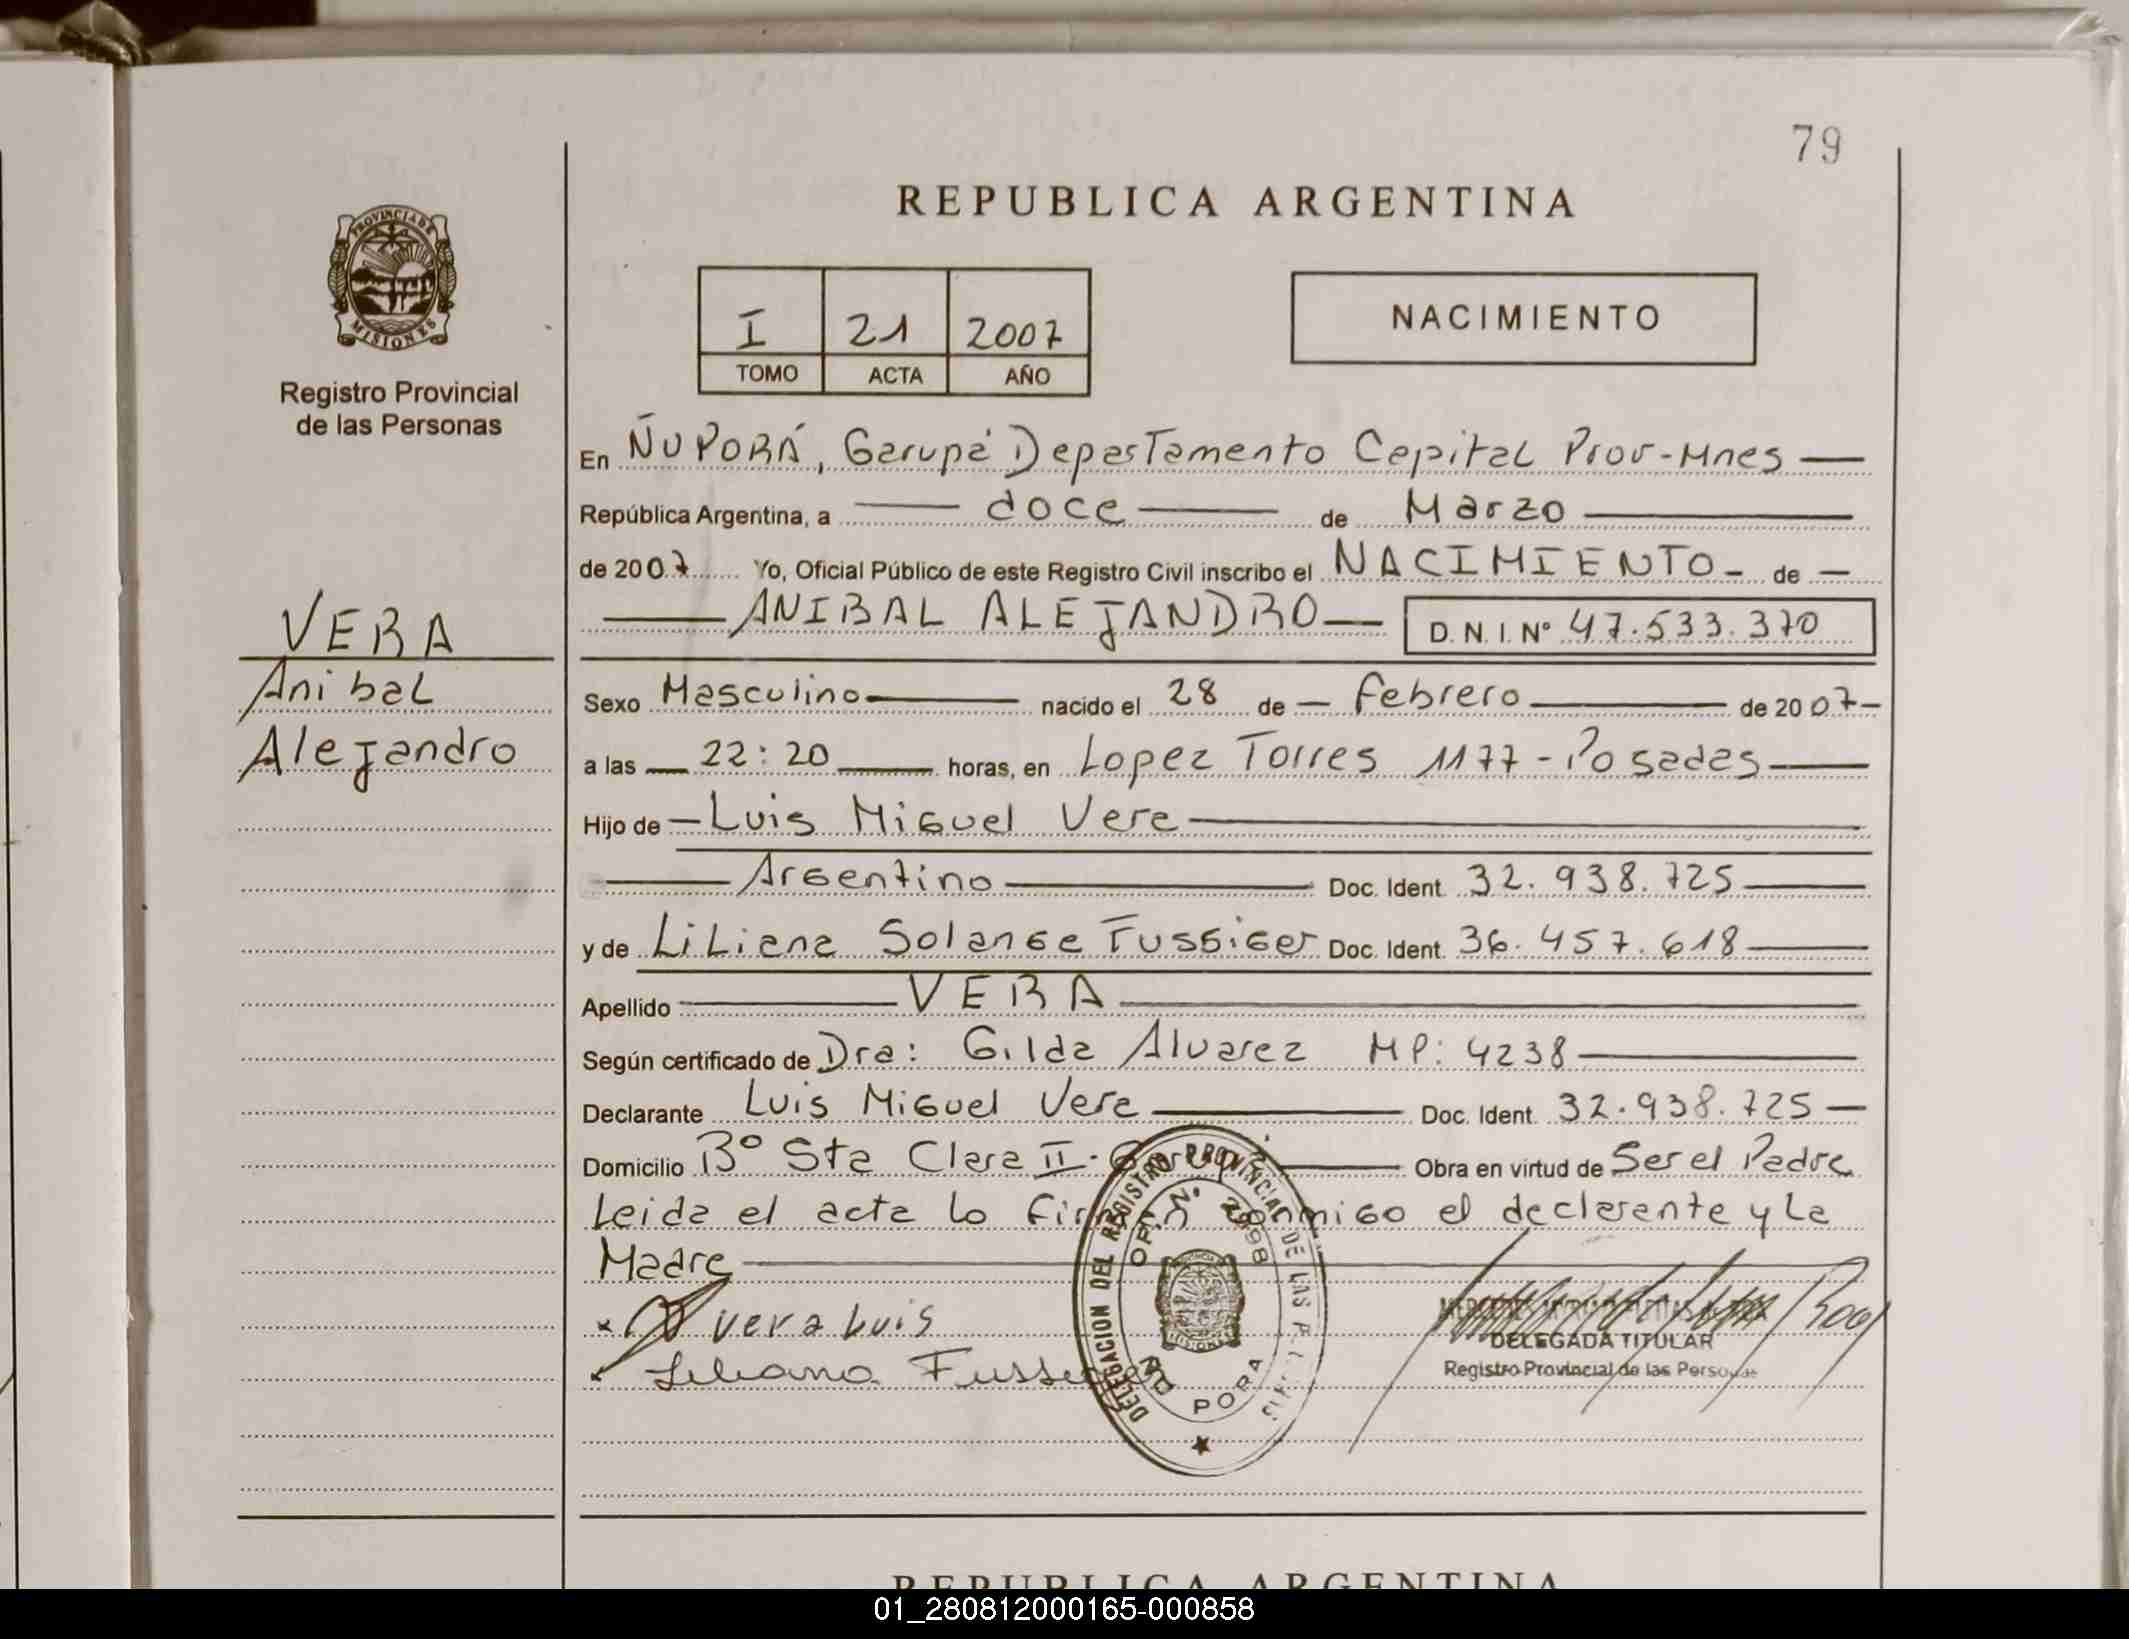 79
REPUBLICA ARGENTINA
PROVINCIA DE
MISIONES
Registro Provincial
de las Personas
I 21 2007
TOMO ACTA AÑO
NACIMIENTO
En ÑU PORÁ, Garupá Departamento Capital Prov-Mnes
República Argentina, a doce de Marzo
de 2007 Yo, Oficial Público de este Registro Civil inscribo el NACIMIENTO de
ANIBAL ALEJANDRO D.N.I. Nº 47.533.370
VERA
Anibal
Alejandro
Sexo Masculino nacido el 28 de Febrero de 2007
a las 22:20 horas, en Lopez Torres 1177 - Posadas
Hijo de Luis Miguel Vera
Argentino Doc. Ident. 32.938.725
y de Liliana Solange Fussiger Doc. Ident. 36.457.618
Apellido VERA
Según certificado de Dra: Gilda Alvarez MP: 4238
Declarante Luis Miguel Vera Doc. Ident. 32.938.725
Domicilio Bº Sta Clara II - Garupá Obra en virtud de Ser el Padre
Leida el acta lo firman conmigo el declarante y la
Madre
vera Luis
Liliana Fussiger
DELEGACION DEL REGISTRO PROVINCIAL DE LAS
OF. Nº 2998
ÑU PORA
DELEGADA TITULAR
Registro Provincial de las Personas
REPUBLICA ARGENTINA
01_280812000165-000858